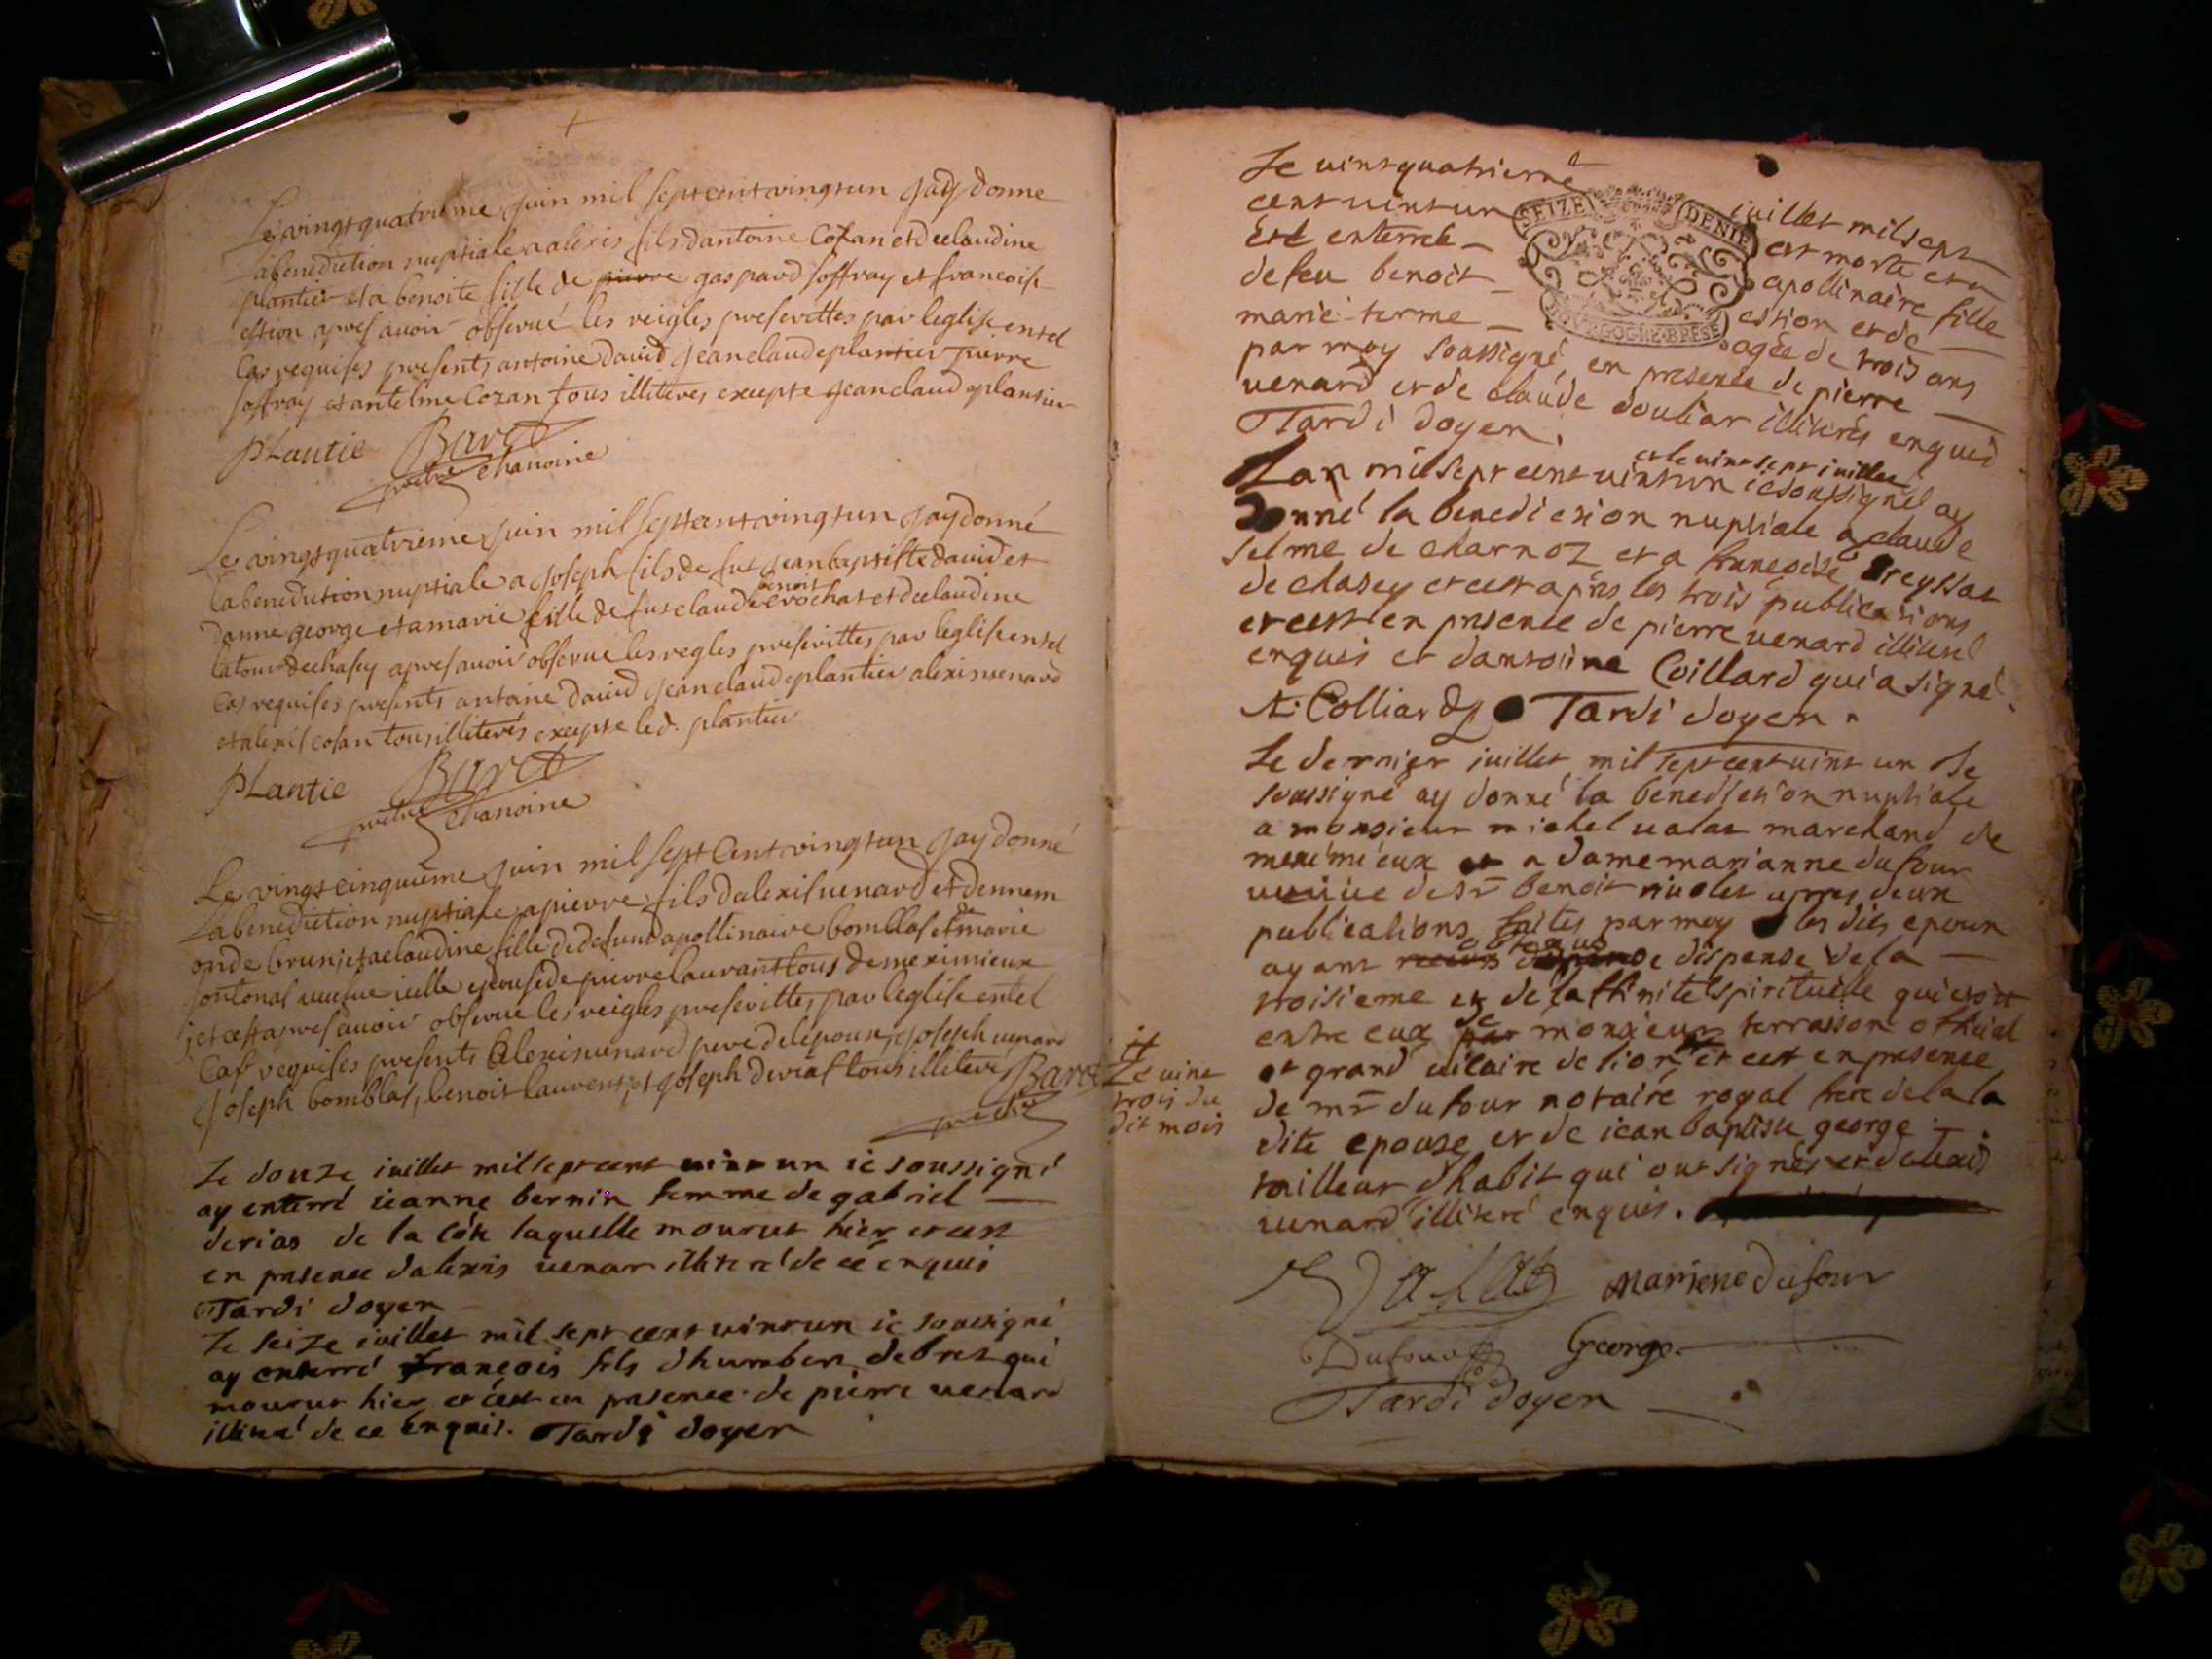 Le vingt quatrieme juin mil sept cent vingt un jay donne
la benediction nuptiale a alexis fils dantoine Cozan et de claudine
plantier et a benoite fille de pierre gaspard soffray et francoise
estion apres avoir observé les reigles prescrittes par leglise en tel
Cas requises presents antoine david jean claude plantier pierre
soffray et antelme Cozan tous illiterés excepte jean claude plantier
pLantie Baret
prebtre chanoine
Le vingt quatrieme juin mil sept cent vingt un jay donné
la benediction nuptiale a joseph fils de fut jean baptiste david et
danne george et a marie fille de fut claude benoit crochat et de claudine
latour de chasey apres avoir observe les regles prescrittes par leglise en tel
Cas requises presents antoine david jean claude plantier alexis venard
et alexis cosan tous illiterés excepte led. plantier
pLantie Baret
prebtre chanoine
Le vingt cinquieme juin mil sept Cent vingt un jay donné
la benediction nuptiale a pierre fils dalexis venard et dennem
onde brun et a claudine fille de defunt apollinaire bomblas et de marie
fontonas veufve icelle epouse de pierre laurant tous de meximieux
et cest apres avoir observe les reigles prescrittes par leglise en tel
Cas requises presents Alexis venard pere de lepoux, joseph venard
joseph bomblas, benoit laurent, et joseph derias tous illiteré Baret
prebtre
Le douze iuillet mil sept cent vint un ie soussigné
ay enterré ieanne bernin femme de gabriel
derias de la côte laquelle mourut hier et cest
en presence dalexis venar illiteré de ce enquis
Tardi doyen
Le seize iuillet mil sept cent vint un ie soussigné
ay enterré françois fils dhumbert debret qui
mourut hier et cest en presence de pierre venard
illiteré de ce enquis. Tardi doyen
Le vint quatrieme iuillet mil sept
cent vint un est morte et a
été enterrée apollinaire fille
de feu benoit estion et de
marie terme agée de trois ans
par moy soussigné, en presence de pierre
venard et de claude douliar illiterés enquis
Tardi doyen.
SEIZE DENIE
BOURGOGNE·BRESE
et le vint sept iuillet
Lan mil sept cent vint un ie soussigné ay
donné la benediction nuptiale a claude
selme de charnoz et a françoise Breyssat
de chasey et cest apres les trois publications
et cest en presence de pierre venard illiteré
enquis et dantoine Coillard qui a signé.
A. Colliard Tardi doyen.
Le dernier iuillet mil sept cent vint un Je
soussigné ay donné la benediction nuptiale
a monsieur michel valat marchand de
meximieux et a dame marianne dufour
veuve de sr benoit nivolet apres deux
publications faites par moy les dits epoux
ayant obtenus dispense de la
troisieme et de laffinité spirituelle qui etoit
entre eux de monsieur terrasson official
et grand vicaire de lion et cest en presence
de mr dufour notaire royal frere de la la
dite epouse et de iean baptiste george
tailleur dhabit qui ont signés et dalexis
venard illiteré enquis.
Le vint
trois du
dit mois
Valat Mariene dufour
Dufour George
Tardi doyen